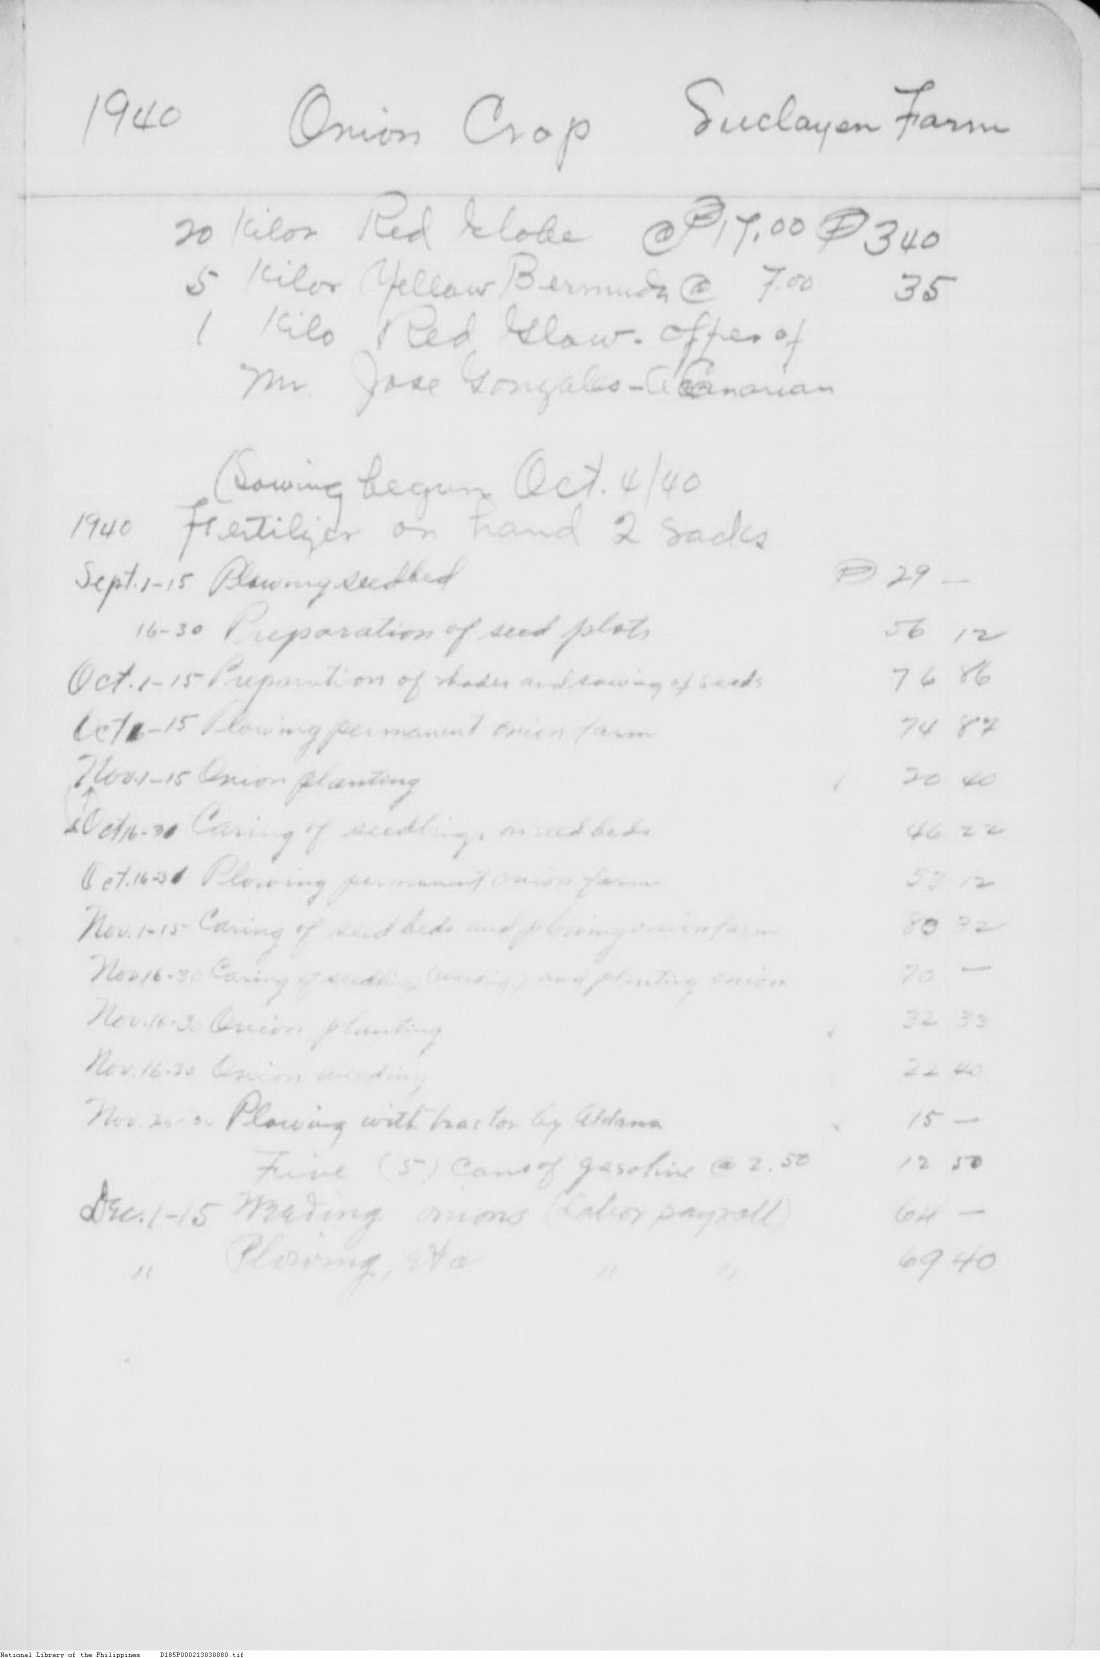 1940 Onion Crop Suclayen Farm
20 Kilos Red Globe @ ₱17.00 ₱340
5 Kilos Yellow Bermuda @ 7.00 35
1 Kilo Red Glow. offer of
Mr. Jose Gonzales - Canarian
(Sowing begun Oct. 4/40
1940 Fertilizer on hand 2 sacks
Sept. 1-15 Plowing seedbed ₱ 29 —
16-30 Preparation of seed plots 56 12
Oct. 1-15 Preparation of shades and sowing of seeds 76 86
Oct 1-15 Plowing permanent onion farm 74 87
Nov. 1-15 Onion planting 20 40
Oct 16-31 Caring of seedlings on seedbeds 46 22
Oct. 16-31 Plowing permanent onion farm 12
Nov. 1-15 Caring of seedbeds and plowing onion farm 80
Nov 16-30 Caring of seedling (weeding) and planting onion 70 —
Nov. 16-30 Onion planting 32 33
Nov. 16-30 Onion weeding 22 40
Nov. Plowing with tractor by Aldana 15 —
Five (5) cans of gasoline @ 2.50 12 50
Dec. 1-15 Weeding onions (Labor payroll) 64 —
" Plowing, etc " " 69 40
National Library of the Philippines D185P000213038080.tif